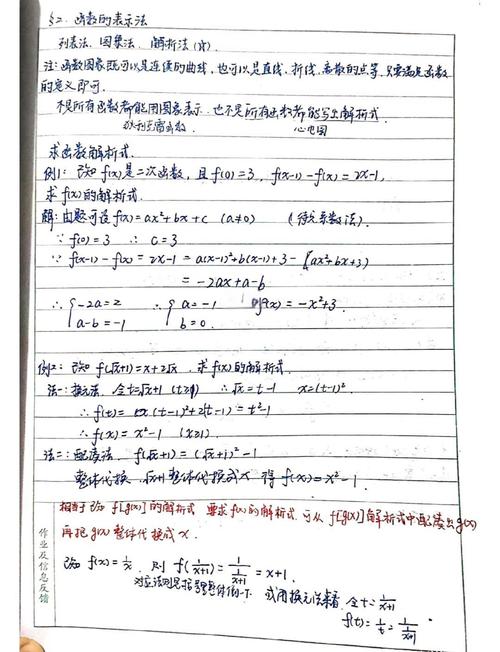 §2. 函数的表示法
列表法、图象法、解析法(式)
注:函数图象既可以是连续的曲线,也可以是直线、折线、离散的点等,只要满足函数
的定义即可.
不是所有函数都能用图象表示,也不是所有函数都能写出解析式.
狄利克雷函数 心电图
求函数解析式.
例1:已知f(x)是二次函数,且f(0)=3,f(x-1)-f(x)=2x-1,
求f(x)的解析式.
解:由题可设f(x)=ax²+bx+c (a≠0) (待定系数法).
∵ f(0)=3 ∴ c=3
∵ f(x-1)-f(x)=2x-1=a(x-1)²+b(x-1)+3-(ax²+bx+3)
=-2ax+a-b
∴ {-2a=2 ∴ {a=-1 ∴f(x)=-x²+3.
a-b=-1 b=0.
例2:已知f(√x+1)=x+2√x,求f(x)的解析式.
法一:换元法. 令t=√x+1 (t≥1) ∴√x=t-1 x=(t-1)².
∴f(t)=(t-1)²+2(t-1)=t²-1
∴f(x)=x²-1 (x≥1).
法二:配凑法. f(√x+1)=(√x+1)²-1
整体代换,√x+1整体代换成x 得f(x)=x²-1.
相当于已知f[g(x)]的解析式 要求f(x)的解析式,可从f[g(x)]解析式中配凑出g(x)
再把g(x)整体代换成x.
作业及信息反馈
已知f(x)=1/x,则f(1/(x+1))=1/(1/(x+1))=x+1.
对应法则是括号整体倒一下. 或用换元法来看,令t=1/(x+1)
f(t)=1/t=1/(1/(x+1))